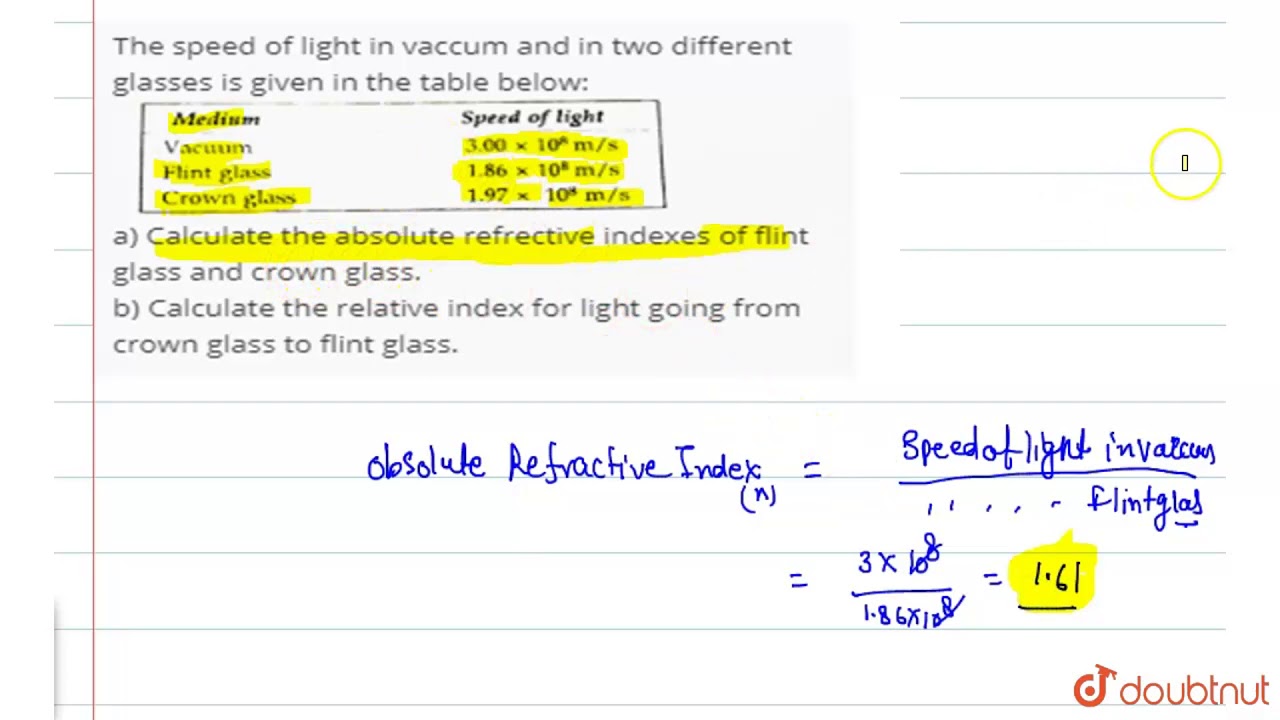 The speed of light in vaccum and in two different
glasses is given in the table below:
Medium Speed of light
Vacuum 3.00 × 10⁸ m/s
Flint glass 1.86 × 10⁸ m/s
Crown glass 1.97 × 10⁸ m/s
a) Calculate the absolute refrective indexes of flint
glass and crown glass.
b) Calculate the relative index for light going from
crown glass to flint glass.
absolute Refractive Index (n) = Speed of light in vaccum
,, ,, . . . Flint glas
= 3 × 10⁸ = 1.61
1.86 × 10⁸
doubtnut